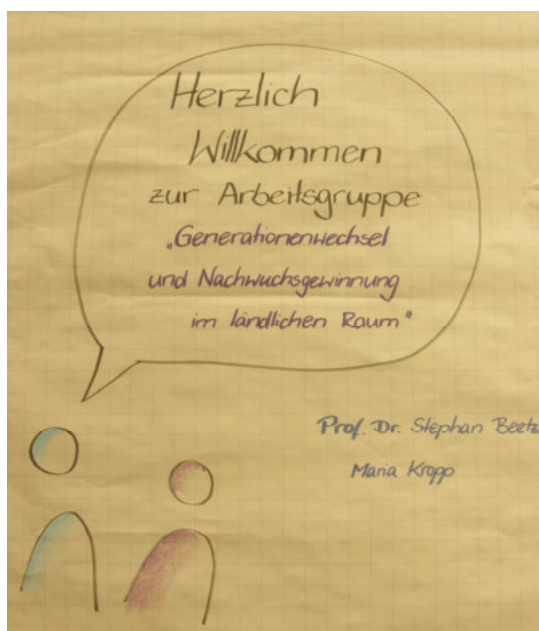 Herzlich
Willkommen
zur Arbeitsgruppe
„Generationenwechsel
und Nachwuchsgewinnung
im ländlichen Raum"
Prof. Dr. Stephan Beetz
Maria Kropp